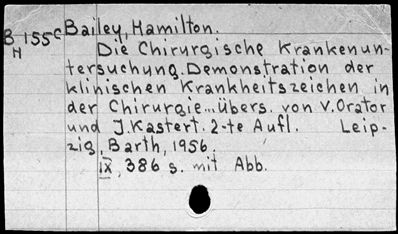 B 155c Bailey, Hamilton.
H Die Chirurgische Krankenun-
tersuchung. Demonstration der
klinischen Krankheitszeichen in
der Chirurgie... Übers. von V. Orator
und J. Kastert. 2-te Aufl. Leip-
zig, Barth, 1956.
IX, 386 s. mit Abb.